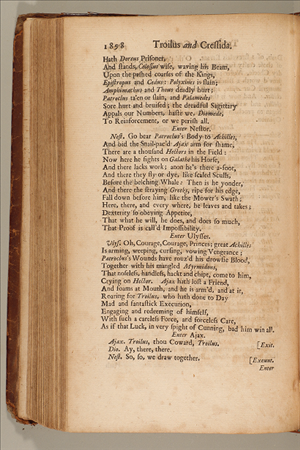 1898 Troilus and Cressida.
Hath Doreus Prisoner,
And stands Colossus wise, waving his Beam,
Upon the pashed courses of the Kings,
Epistropus and Cedus: Polyxines is slain;
Amphimachus and Thoas deadly hurt;
Patroclus ta'en or slain, and Palamedes
Sore hurt and bruised; the dreadful Sagittary
Appals our Numbers, haste we Diomede,
To Reinforcement, or we perish all.
Enter Nestor.
Nest. Go bear Patroclus's Body to Achilles,
And bid the Snail-pac'd Ajax arm for shame,
There are a thousand Hectors in the Field:
Now here he fights on Galathe his Horse,
And there lacks work; anon he's there a-foot,
And there they fly or dye, like scaled Sculls,
Before the belching Whale: Then is he yonder,
And there the straying Greeks, ripe for his edge,
Fall down before him, like the Mower's Swath:
Here, there, and every where, he leaves and takes;
Dexterity so obeying Appetite,
That what he will, he does, and does so much,
That Proof is call'd Impossibility.
Enter Ulysses.
Ulys. Oh, Courage, Courage, Princes; great Achilles
Is arming, weeping, cursing, vowing Vengeance;
Patroclus's Wounds have rouz'd his drowsie Blood,
Together with his mangled Myrmidons,
That noseless, handless, hackt and chipt, come to him,
Crying on Hector. Ajax hath lost a Friend,
And foams at Mouth, and he is arm'd, and at it,
Roaring for Troilus, who hath done to Day
Mad and fantastick Execution,
Engaging and redeeming of himself,
With such a careless Force, and forceless Care,
As if that Luck, in very spight of Cunning, bad him win all.
Enter Ajax.
Ajax. Troilus, thou Coward, Troilus. [Exit.
Dio. Ay, there, there.
Nest. So, so, we draw together. [Exeunt.
Enter